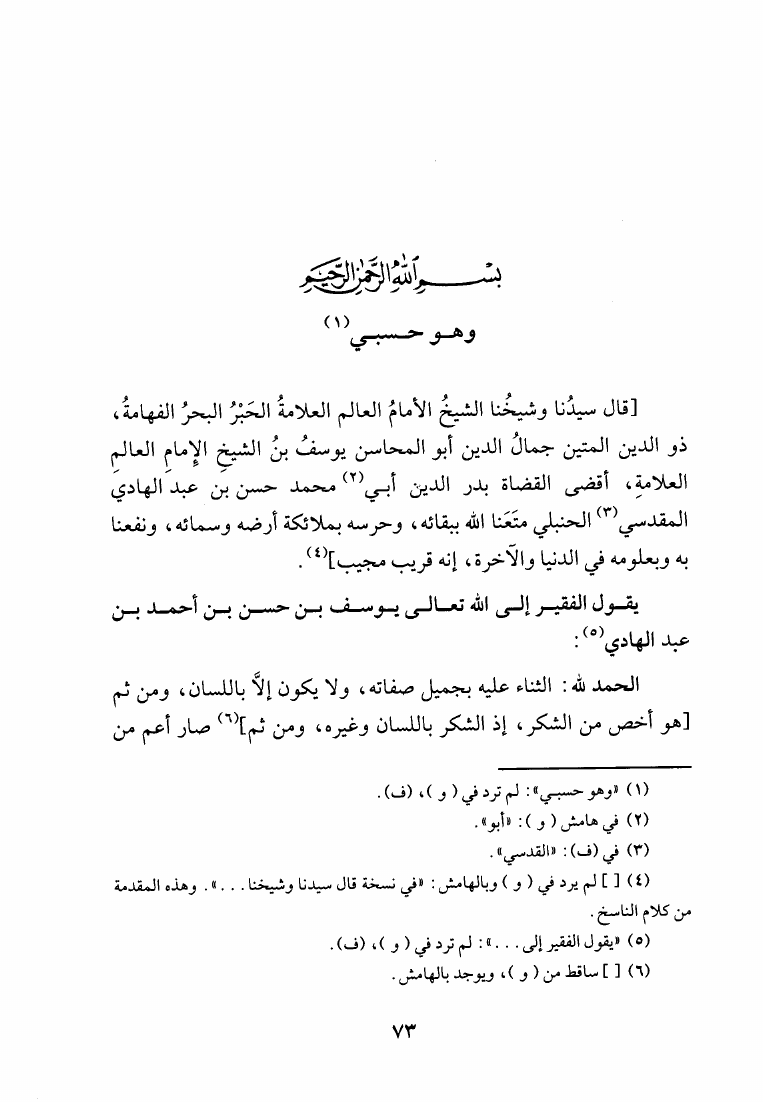 بسم الله الرحمن الرحيم
وهو حسبي(١)
[قال سيدُنا وشيخُنا الشيخُ الأمامُ العالم العلامةُ الحَبْرُ البحرُ الفهامةُ،
ذو الدين المتين جمالُ الدين أبو المحاسن يوسفُ بنُ الشيخِ الإمامِ العالمِ
العلامةِ، أقضى القضاة بدر الدين أبي(٢) محمد حسن بن عبد الهادي
المقدسي(٣) الحنبلي متَعَنا الله ببقائه، وحرسه بملائكة أرضه وسمائه، ونفعنا
به وبعلومه في الدنيا والآخرة، إنه قريب مجيب](٤).
يقول الفقير إلى الله تعالى يوسف بن حسن بن أحمد بن
عبد الهادي(٥):
الحمد لله: الثناء عليه بجميل صفاته، ولا يكون إلاَّ باللسان، ومن ثم
[هو أخص من الشكر، إذ الشكر باللسان وغيره، ومن ثم](٦) صار أعم من
(١) «وهو حسبي»: لم ترد في ( و )، (ف).
(٢) في هامش ( و ): «أبو».
(٣) في (ف): «القدسي».
(٤) [ ] لم يرد في ( و ) وبالهامش: «في نسخة قال سيدنا وشيخنا . . .». وهذه المقدمة
من كلام الناسخ.
(٥) «يقول الفقير إلى . . .»: لم ترد في ( و )، (ف).
(٦) [ ] ساقط من ( و )، ويوجد بالهامش.
٧٣